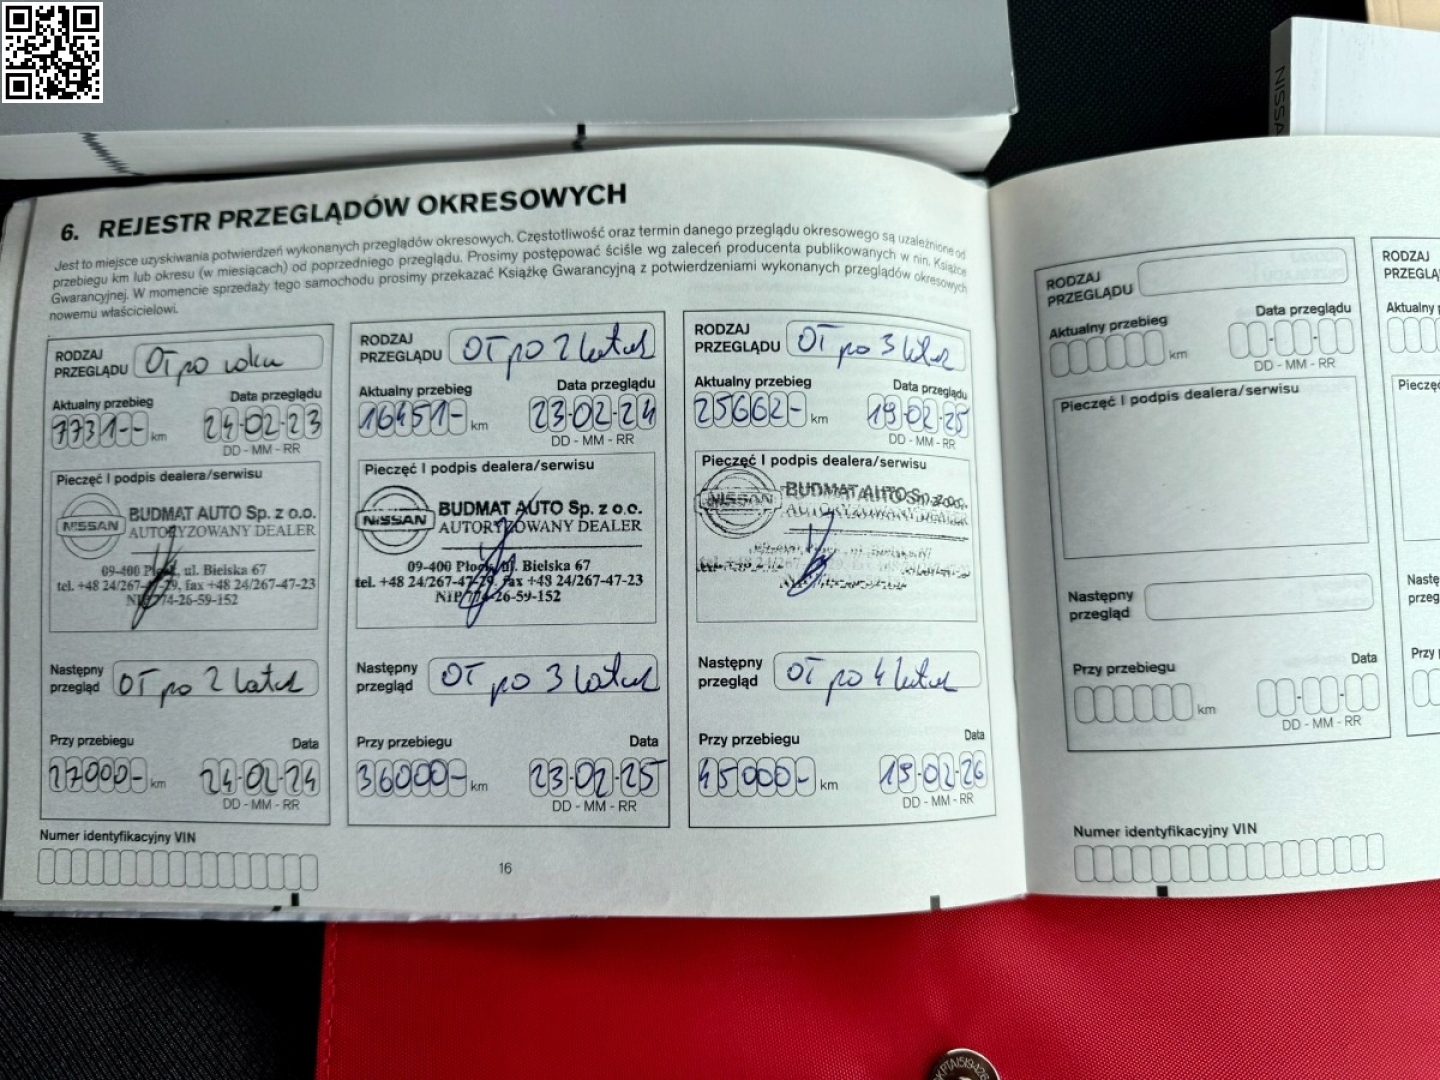 NISSA
6. REJESTR PRZEGLĄDÓW OKRESOWYCH
Jest to miejsce uzyskiwania potwierdzeń wykonanych przeglądów okresowych. Częstotliwość oraz termin danego przeglądu okresowego są uzależnione od
przebiegu km lub okresu (w miesiącach) od poprzedniego przeglądu. Prosimy postępować ściśle wg zaleceń producenta publikowanych w nin. Książce
Gwarancyjnej. W momencie sprzedaży tego samochodu prosimy przekazać Książkę Gwarancyjną z potwierdzeniami wykonanych przeglądów okresowych
nowemu właścicielowi.
RODZAJ
PRZEGLĄDU OT po roku
Aktualny przebieg Data przeglądu
7731-- km 24-02-23
DD - MM - RR
Pieczęć I podpis dealera/serwisu
NISSAN
BUDMAT AUTO Sp. z o.o.
AUTORYZOWANY DEALER
09-400 Płock, ul. Bielska 67
tel. +48 24/267-47-29, fax +48 24/267-47-23
NIP 774-26-59-152
Następny
przegląd OT po 2 latach
Przy przebiegu Data
27000- km 24-02-24
DD - MM - RR
Numer identyfikacyjny VIN
RODZAJ
PRZEGLĄDU OT po 2 latach
Aktualny przebieg Data przeglądu
16451- km 23-02-24
DD - MM - RR
Pieczęć I podpis dealera/serwisu
NISSAN
BUDMAT AUTO Sp. z o.o.
AUTORYZOWANY DEALER
09-400 Płock, ul. Bielska 67
tel. +48 24/267-47-29, fax +48 24/267-47-23
NIP 774-26-59-152
Następny
przegląd OT po 3 latach
Przy przebiegu Data
36000- km 23-02-25
DD - MM - RR
RODZAJ
PRZEGLĄDU OT po 3 latach
Aktualny przebieg Data przeglądu
25662- km 19-02-25
DD - MM - RR
Pieczęć I podpis dealera/serwisu
NISSAN
BUDMAT AUTO Sp. z o.o.
AUTORYZOWANY DEALER
Następny
przegląd OT po 4 latach
Przy przebiegu Data
45000- km 19-02-26
DD - MM - RR
16
RODZAJ
PRZEGLĄDU
Aktualny przebieg Data przeglądu
km
DD - MM - RR
Pieczęć I podpis dealera/serwisu
Następny
przegląd
Przy przebiegu Data
km
DD - MM - RR
Numer identyfikacyjny VIN
RODZAJ
PRZEGLĄ
Aktualny p
Pieczę
Nastę
przeg
Przy p